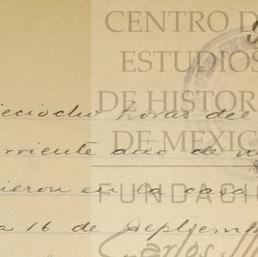 CENTRO D
ESTUDIOS
DE HISTOR
DE MEXIC
FUNDACI
ieciocho horas del
rriente año de
ieron en la casa
a 16 de Septiem
Carlos